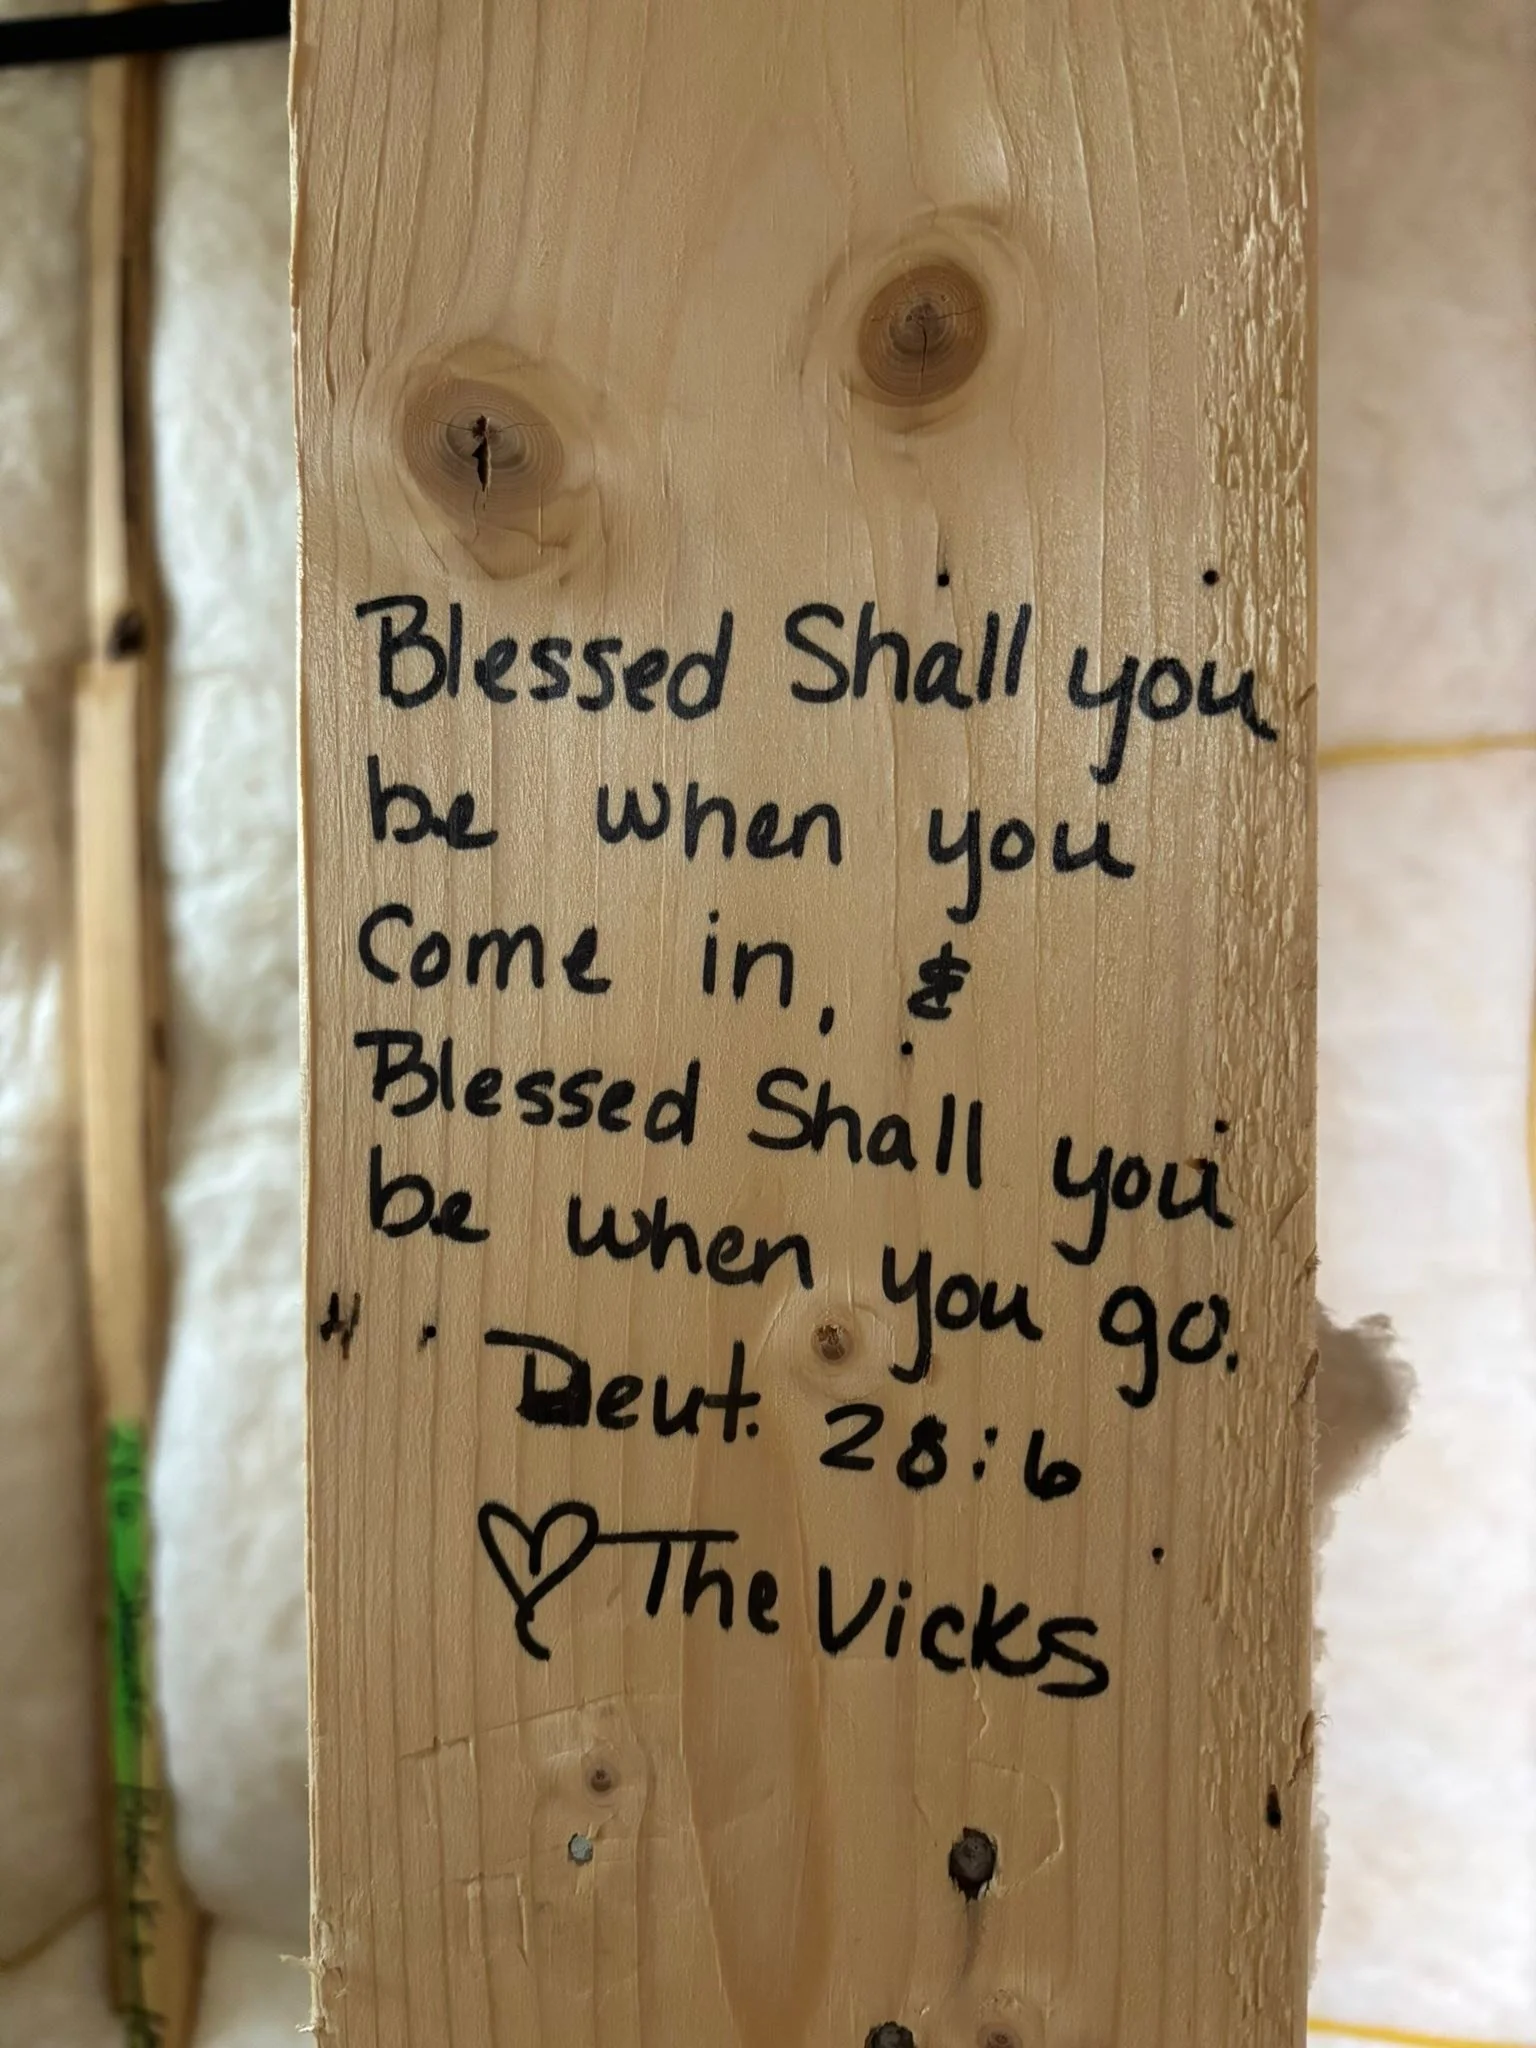 Blessed Shall you
be when you
Come in, &
Blessed Shall you
be when you go.
Deut. 28:6
♡ The Vicks